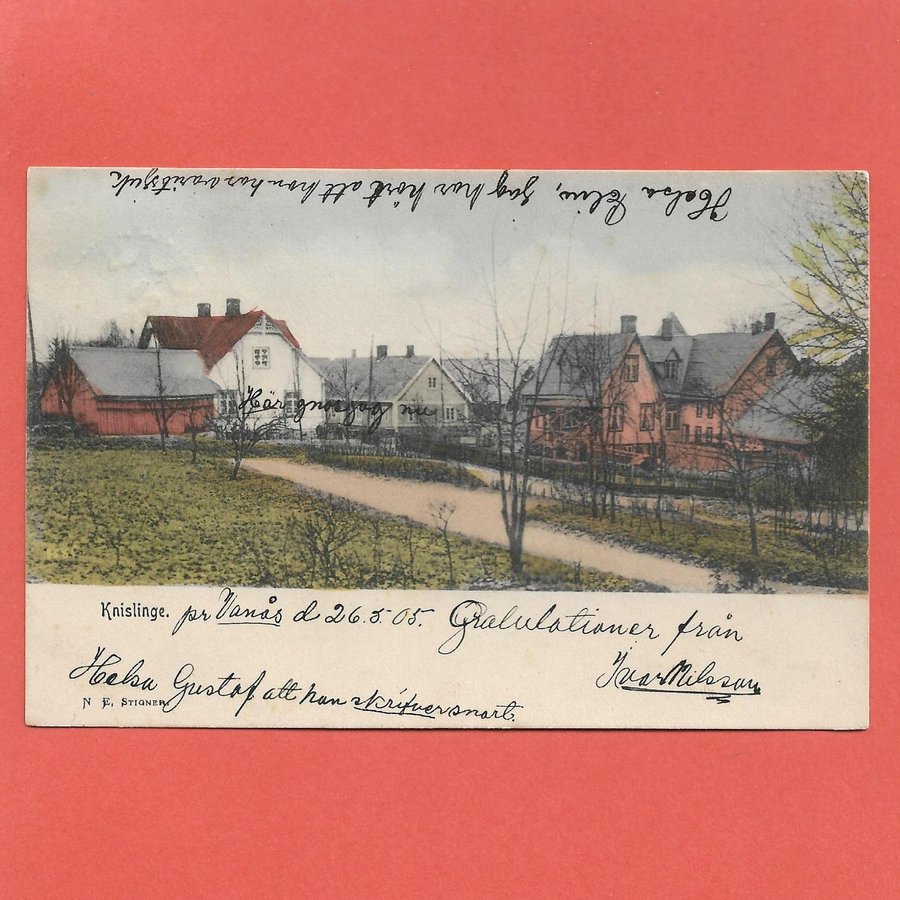 Helsa Elin, Jag har hört att hon har varit sjuk.
Här
Knislinge. pr Vanås d 26.5.05. Gratulationer från
Ivar Nilsson
Helsa Gustaf att han skrifver snart.
N. E. Stigner.